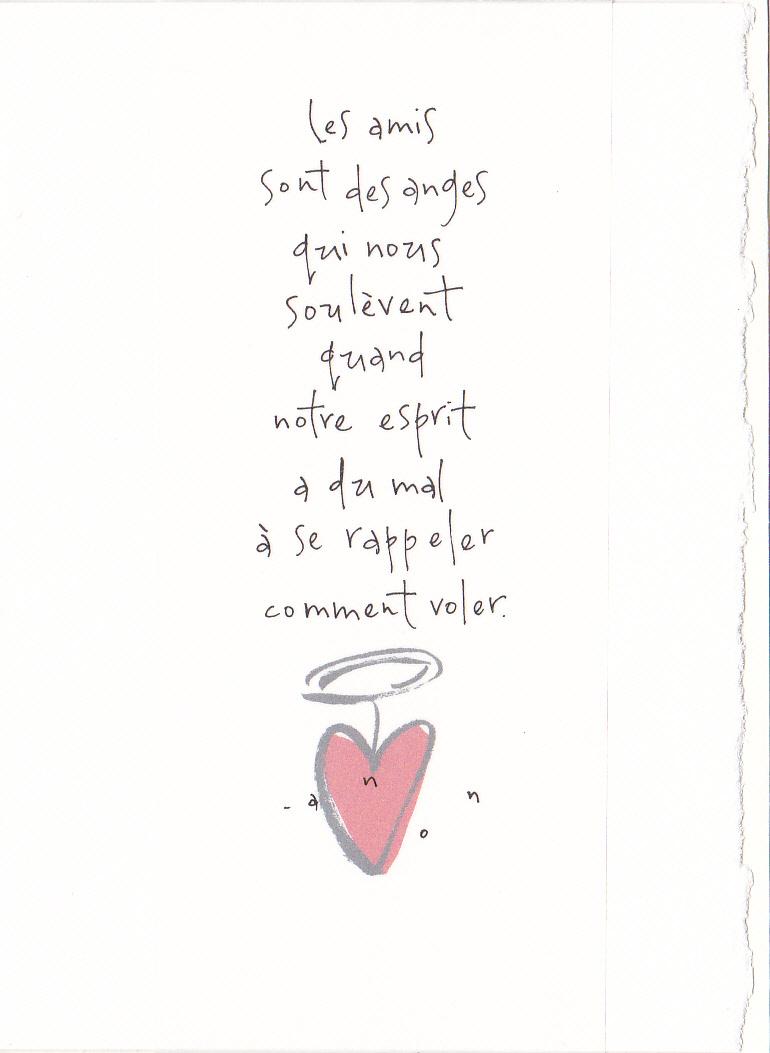 les amis
sont des anges
qui nous
soulèvent
quand
notre esprit
a du mal
à se rappeler
comment voler.
- a n o n